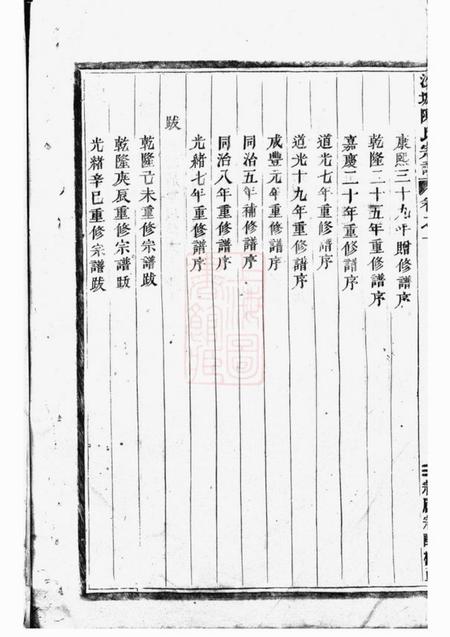 陳氏宗譜
康熙三十九年贈修譜序
乾隆二十五年重修譜序
嘉慶二十年重修譜序
道光七年重修譜序
道光十九年重修譜序
咸豐元年重修譜序
同治五年補修譜序
同治八年重修譜序
光緒七年重修譜序
跋
乾隆己未重修宗譜跋
乾隆庚辰重修宗譜跋
光緒辛巳重修宗譜跋